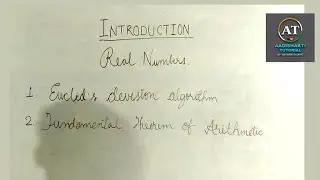 INTRODUCTION
Real Numbers.
1. Euclid's devision algorithm
2. Fundamental Theorem of Arithmetic
AT
AADISHAKTI
TUTORIAL